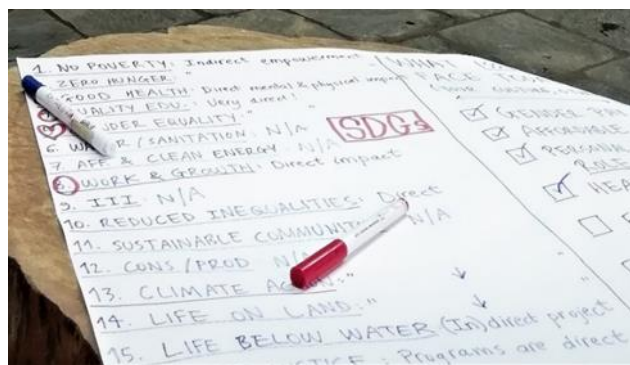 1. NO POVERTY: Indirect empowerment
ZERO HUNGER: "
GOOD HEALTH: Direct mental & physical impact
QUALITY EDU.: Very direct! "
GENDER EQUALITY: "
6. WATER/SANITATION: N/A
7. AFF & CLEAN ENERGY: N/A
8. WORK & GROWTH: Direct impact
9. III: N/A
10. REDUCED INEQUALITIES: Direct
11. SUSTAINABLE N/A
12. CONS/PROD N/A
13. CLIMATE "
14. LIFE ON LAND: "
15. LIFE BELOW WATER (In)direct project
: Programs are direct
SDGs
WHAT
FACE
GENDER
AFFORDABLE
PERSONAL
ROLE